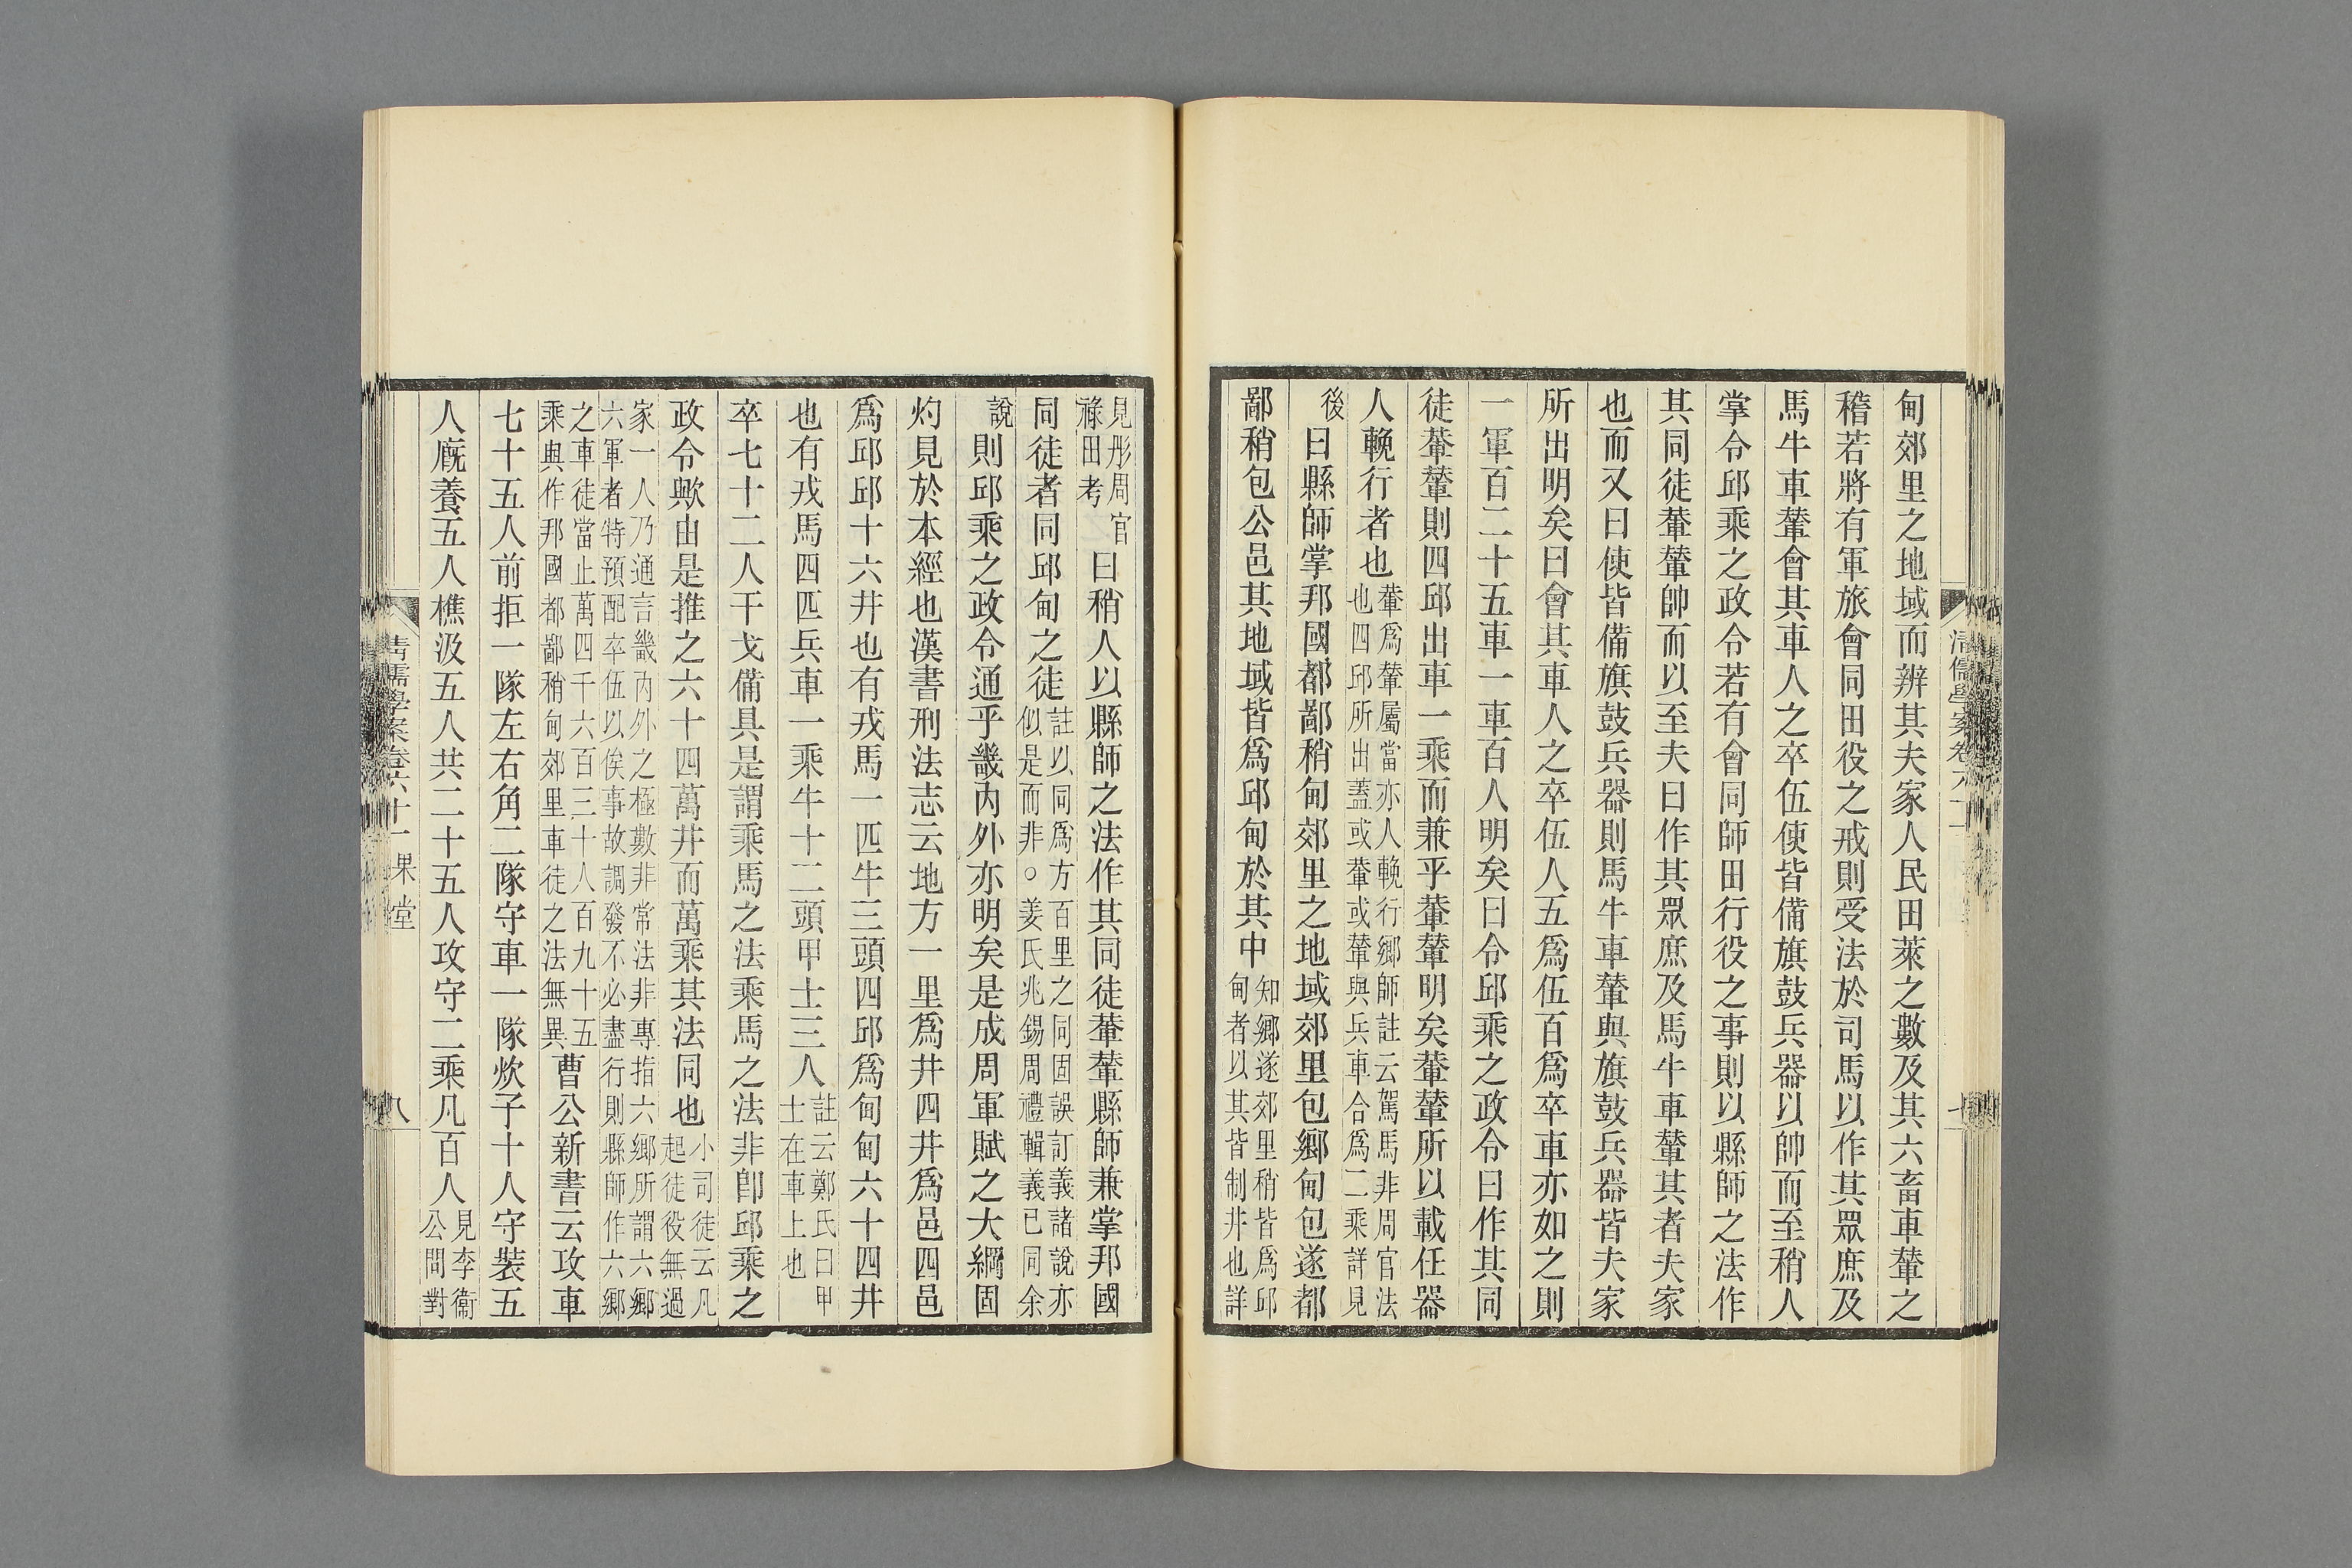 甸郊里之地域而辨其夫家人民田萊之數及其六畜車輦之
稽若將有軍旅會同田役之戒則受法於司馬以作其眾庶及
馬牛車輦會其車人之卒伍使皆備旗鼓兵器以帥而至稍人
掌令邱乘之政令若有會同師田行役之事則以縣師之法作
其同徒輂輦帥而以至夫曰作其眾庶及馬牛車輦其者夫家
也而又曰使皆備旗鼓兵器則馬牛車輦與旗鼓兵器皆夫家
所出明矣曰會其車人之卒伍人五爲伍百爲卒車亦如之則
一軍百二十五車一車百人明矣曰令邱乘之政令曰作其同
徒輂輦則四邱出車一乘而兼乎輂輦明矣輂輦所以載任器
人輓行者也輂爲輦屬當亦人輓行鄉師註云駕馬非周官法
也四邱所出蓋或輂或輦與兵車合爲二乘詳見
後曰縣師掌邦國都鄙稍甸郊里之地域郊里包鄉甸包遂都
鄙稍包公邑其地域皆爲邱甸於其中知鄉遂郊里稍皆爲邱
甸者以其皆制井也詳
清儒學案卷六十一
七
見彤周官
祿田考曰稍人以縣師之法作其同徒輂輦縣師兼掌邦國
同徒者同邱甸之徒註以同爲方百里之同固誤訂義諸說亦
似是而非○姜氏兆錫周禮輯義已同余
說則邱乘之政令通乎畿內外亦明矣是成周軍賦之大綱固
灼見於本經也漢書刑法志云地方一里爲井四井爲邑四邑
爲邱邱十六井也有戎馬一匹牛三頭四邱爲甸甸六十四井
也有戎馬四匹兵車一乘牛十二頭甲士三人註云鄭氏曰甲
士在車上也
卒七十二人干戈備具是謂乘馬之法乘馬之法非卽邱乘之
政令歟由是推之六十四萬井而萬乘其法同也小司徒云凡
起徒役無過
家一人乃通言畿內外之極數非常法非專指六鄉所謂六鄉
六軍者特預配卒伍以俟事故調發不必盡行則縣師作六鄉
之車徒當止萬四千六百三十人百九十五
乘與作邦國都鄙稍甸郊里車徒之法無異曹公新書云攻車
七十五人前拒一隊左右角二隊守車一隊炊子十人守裝五
人廐養五人樵汲五人共二十五人攻守二乘凡百人見李衞
公問對
清儒學案卷六十一果堂
八